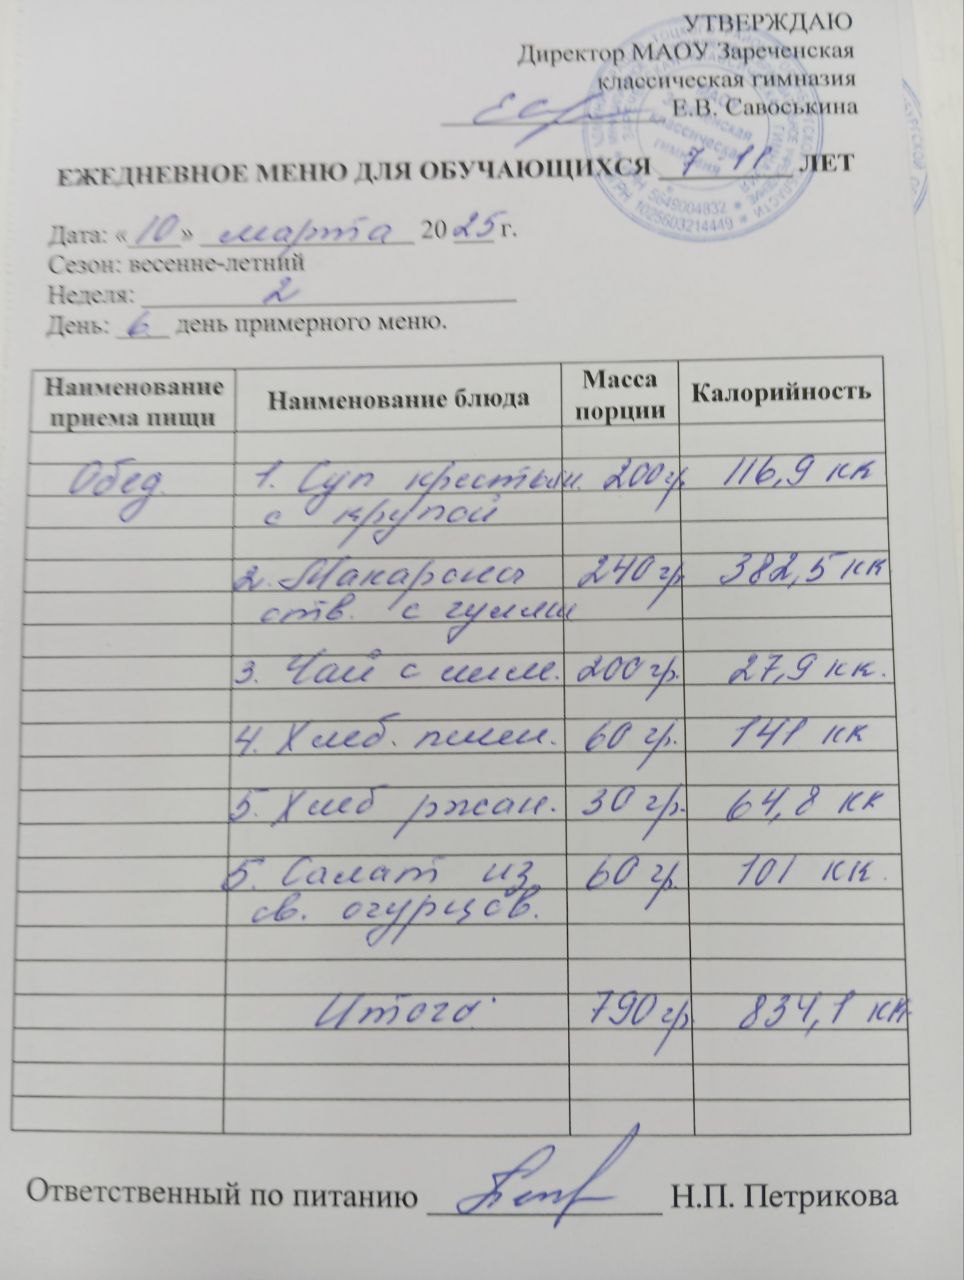 УТВЕРЖДАЮ
Директор МАОУ Зареченская
классическая гимназия
Е.В. Савоськина
ЕЖЕДНЕВНОЕ МЕНЮ ДЛЯ ОБУЧАЮЩИХСЯ 7-11 ЛЕТ
Дата: «10» марта 2025 г.
Сезон: весенне-летний
Неделя: 2
День: 6 день примерного меню.
Наименование приема пищи Наименование блюда Масса порции Калорийность
Обед 1. Суп крестьян. 200гр 116,9 кк
с крупой
2. Макароны 240гр 382,5 кк
отв. с гуляш
3. Чай с лим. 200гр. 27,9 кк.
4. Хлеб. пшен. 60 гр. 141 кк
5. Хлеб ржан. 30 гр. 64,8 кк
5. Салат из 60 гр. 101 кк.
св. огурцов.
Итого: 790 гр 834,1 кк.
Ответственный по питанию Н.П. Петрикова
МАОУ
Зареченская
классическая
гимназия
ИНН 5649004832 * ОГРН 1025603214449 *